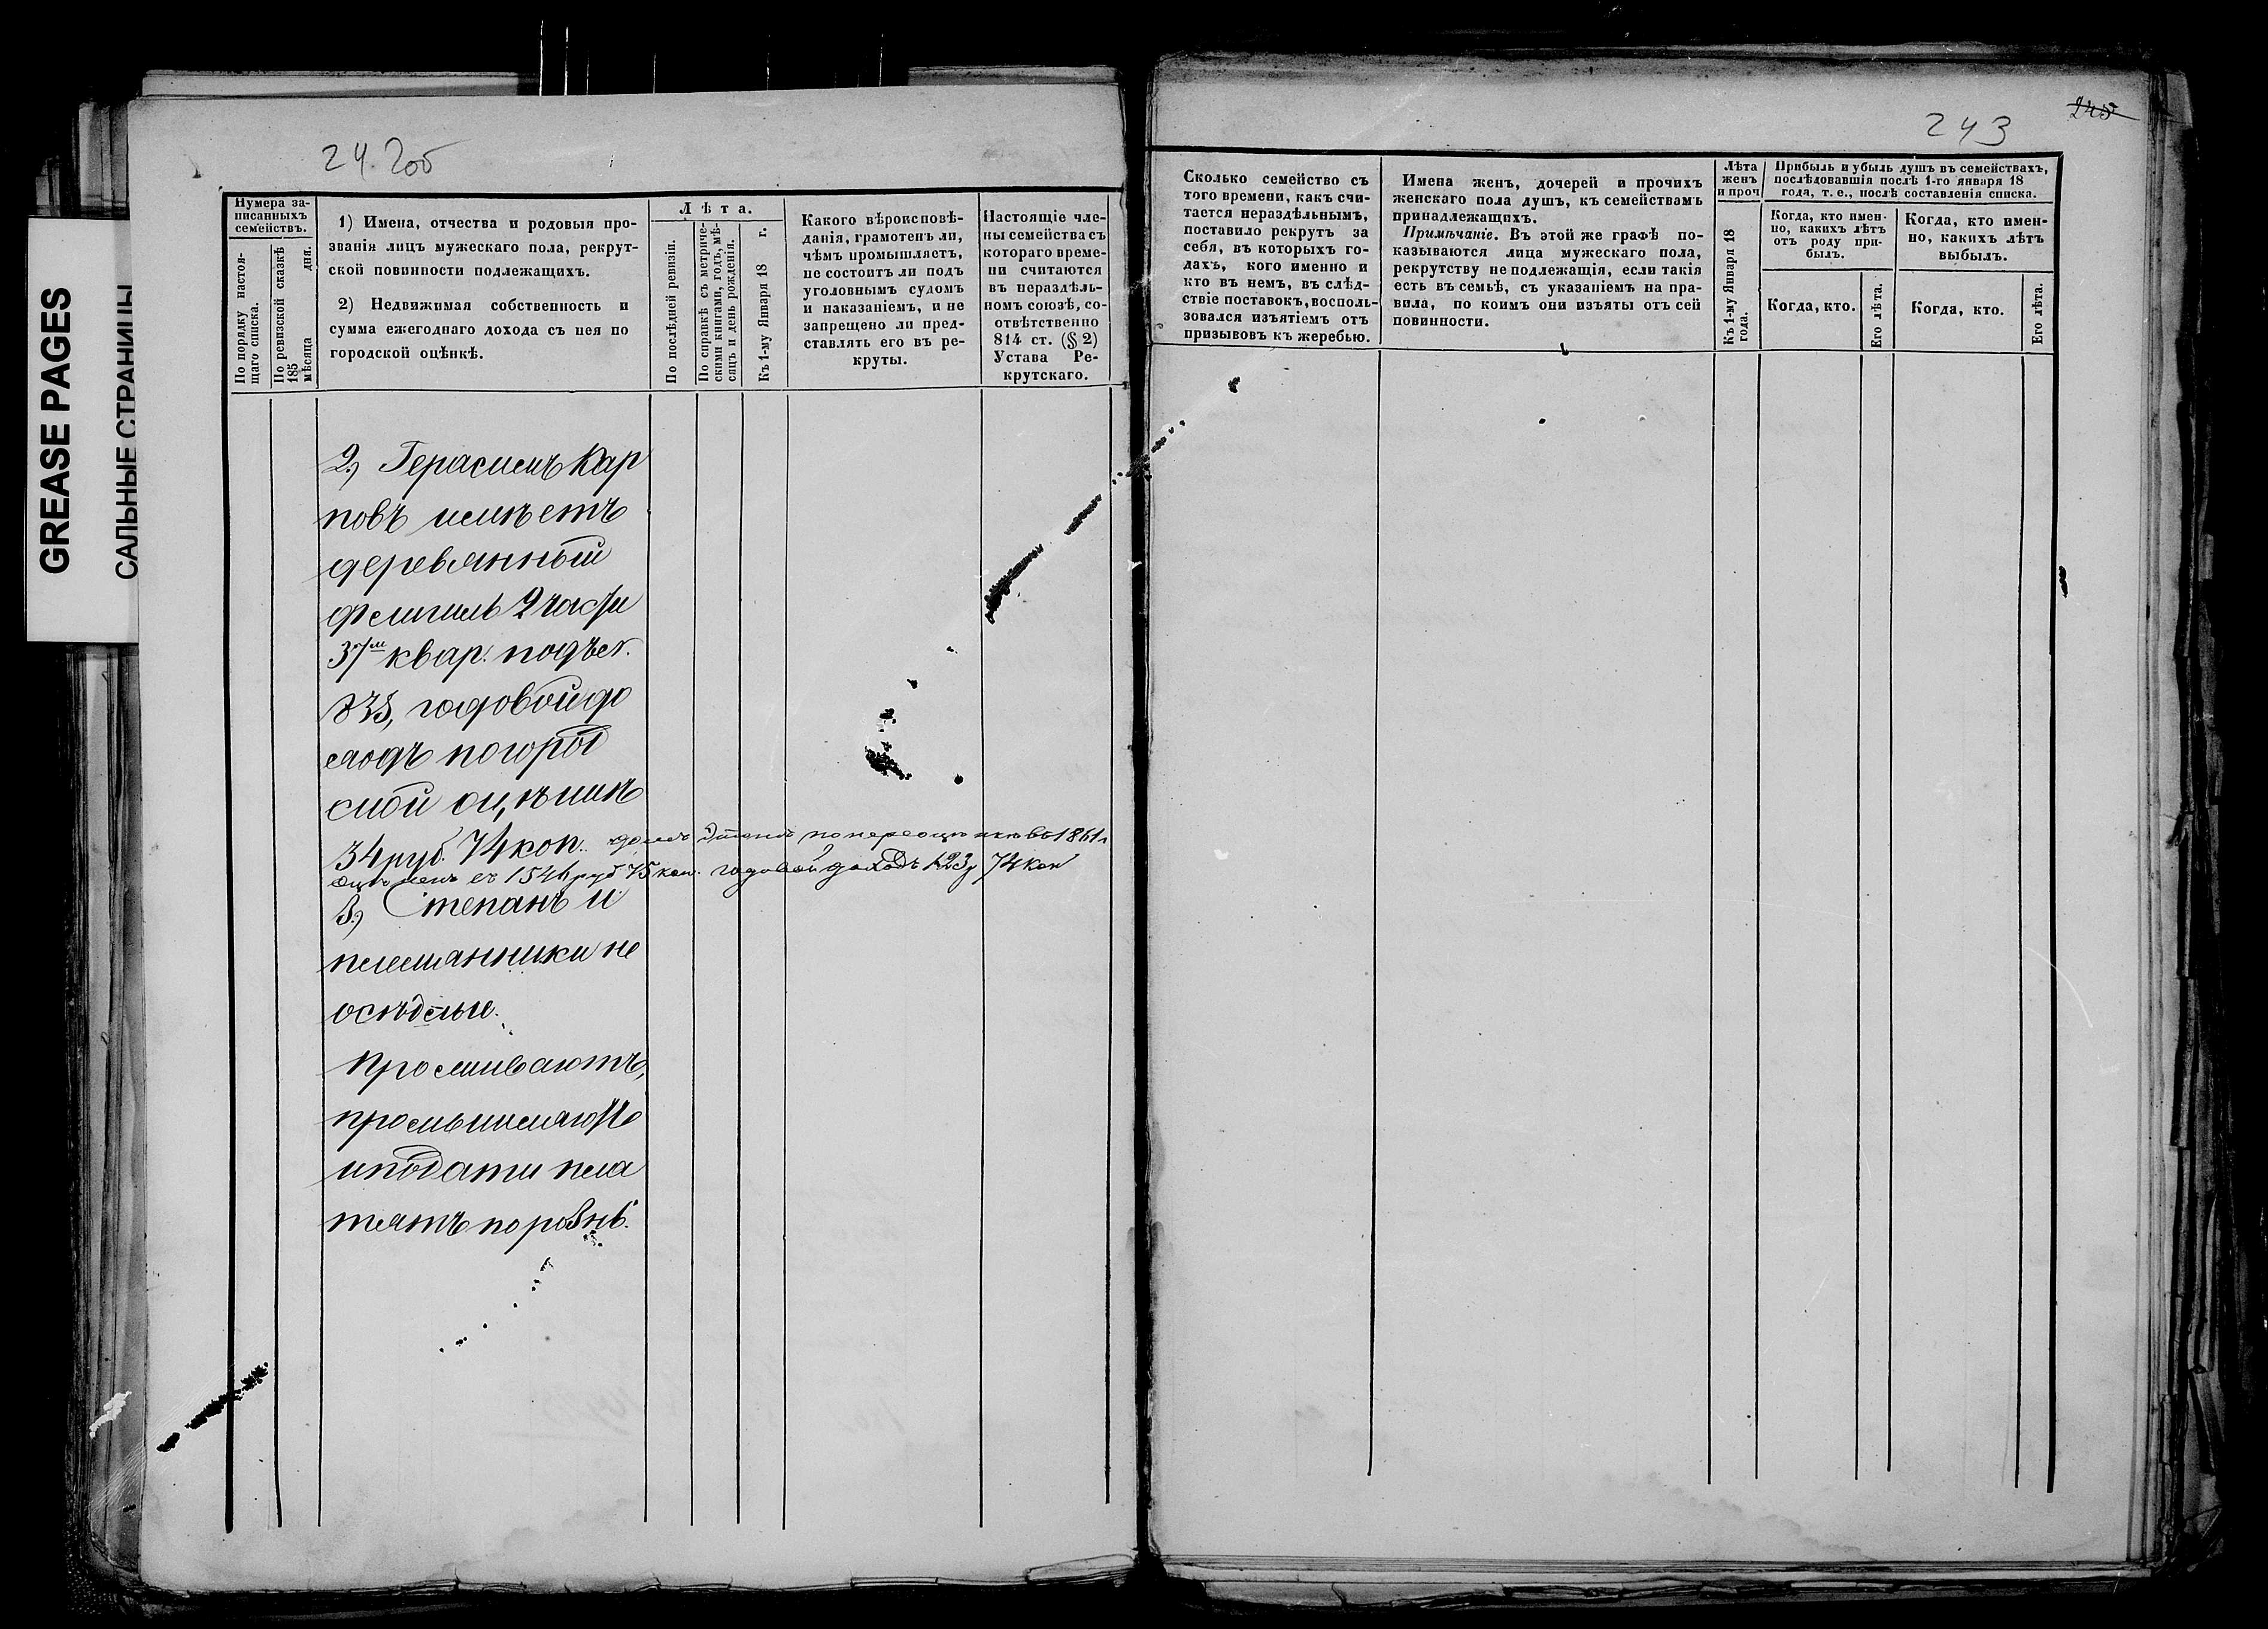 GREASE PAGES
САЛЬНЫЕ СТРАНИЦЫ
24.2об
Нумера за-
писанныхъ
семействъ.
По порядку настоя-
щаго списка.
По ревизской сказкѣ
185 дня.
мѣсяца
1) Имена, отчества и родовыя про-
званія лицъ мужескаго пола, рекрут-
ской повинности подлежащихъ.
2) Недвижимая собственность и
сумма ежегоднаго дохода съ нея по
городской оцѣнкѣ.
Лѣта.
По послѣдней ревизіи.
По справкѣ съ метриче-
скими книгами, годъ, мѣ-
сяцъ и день рожденія.
Къ 1-му Января 18 г.
Какого вѣроисповѣ-
данія, грамотенъ ли,
чѣмъ промышляетъ,
не состоитъ ли подъ
уголовнымъ судомъ
и наказаніемъ, и не
запрещено ли пред-
ставлять его въ ре-
круты.
Настоящіе чле-
ны семейства съ
котораго време-
ни считаются
въ нераздѣль-
номъ союзѣ, со-
отвѣтственно
814 ст. (§ 2)
Устава Ре-
крутскаго.
2) Герасимъ Кар
повъ имѣетъ
деревянный
флигиль 2 части
37м квар. подъ
годовой до
ходъ по город
ской оцѣнкѣ
34 руб. 74 коп. домъ этотъ по переоцѣнкѣ въ 1861 г
оцѣненъ въ 1546 руб 75 коп. годовой доходъ 123 74 коп
3) Степанъ и
племянники не
осѣдлые.
Проживаютъ,
промышляютъ
и подати пла
тятъ порознь.
243
245
Сколько семейство съ
того времени, какъ счи-
тается нераздѣльнымъ,
поставило рекрутъ за
себя, въ которыхъ го-
дахъ, кого именно и
кто въ немъ, въ слѣд-
ствіе поставокъ, восполь-
зовался изъятіемъ отъ
призывовъ къ жеребью.
Имена женъ, дочерей и прочихъ
женскаго пола душъ, къ семействамъ
принадлежащихъ.
Примѣчаніе. Въ этой же графѣ по-
казываются лица мужескаго пола,
рекрутству не подлежащія, если такія
есть въ семьѣ, съ указаніемъ на пра-
вила, по коимъ они изъяты отъ сей
повинности.
Лѣта
женъ
и проч
Къ 1-му Января 18
года.
Прибыль и убыль душъ въ семействахъ,
послѣдовавшія послѣ 1-го января 18
года, т. е., послѣ составленія списка.
Когда, кто имен-
но, какихъ лѣтъ
отъ роду при-
былъ.
Когда, кто имен-
но, какихъ лѣтъ
выбылъ.
Когда, кто.
Его лѣта.
Когда, кто.
Его лѣта.